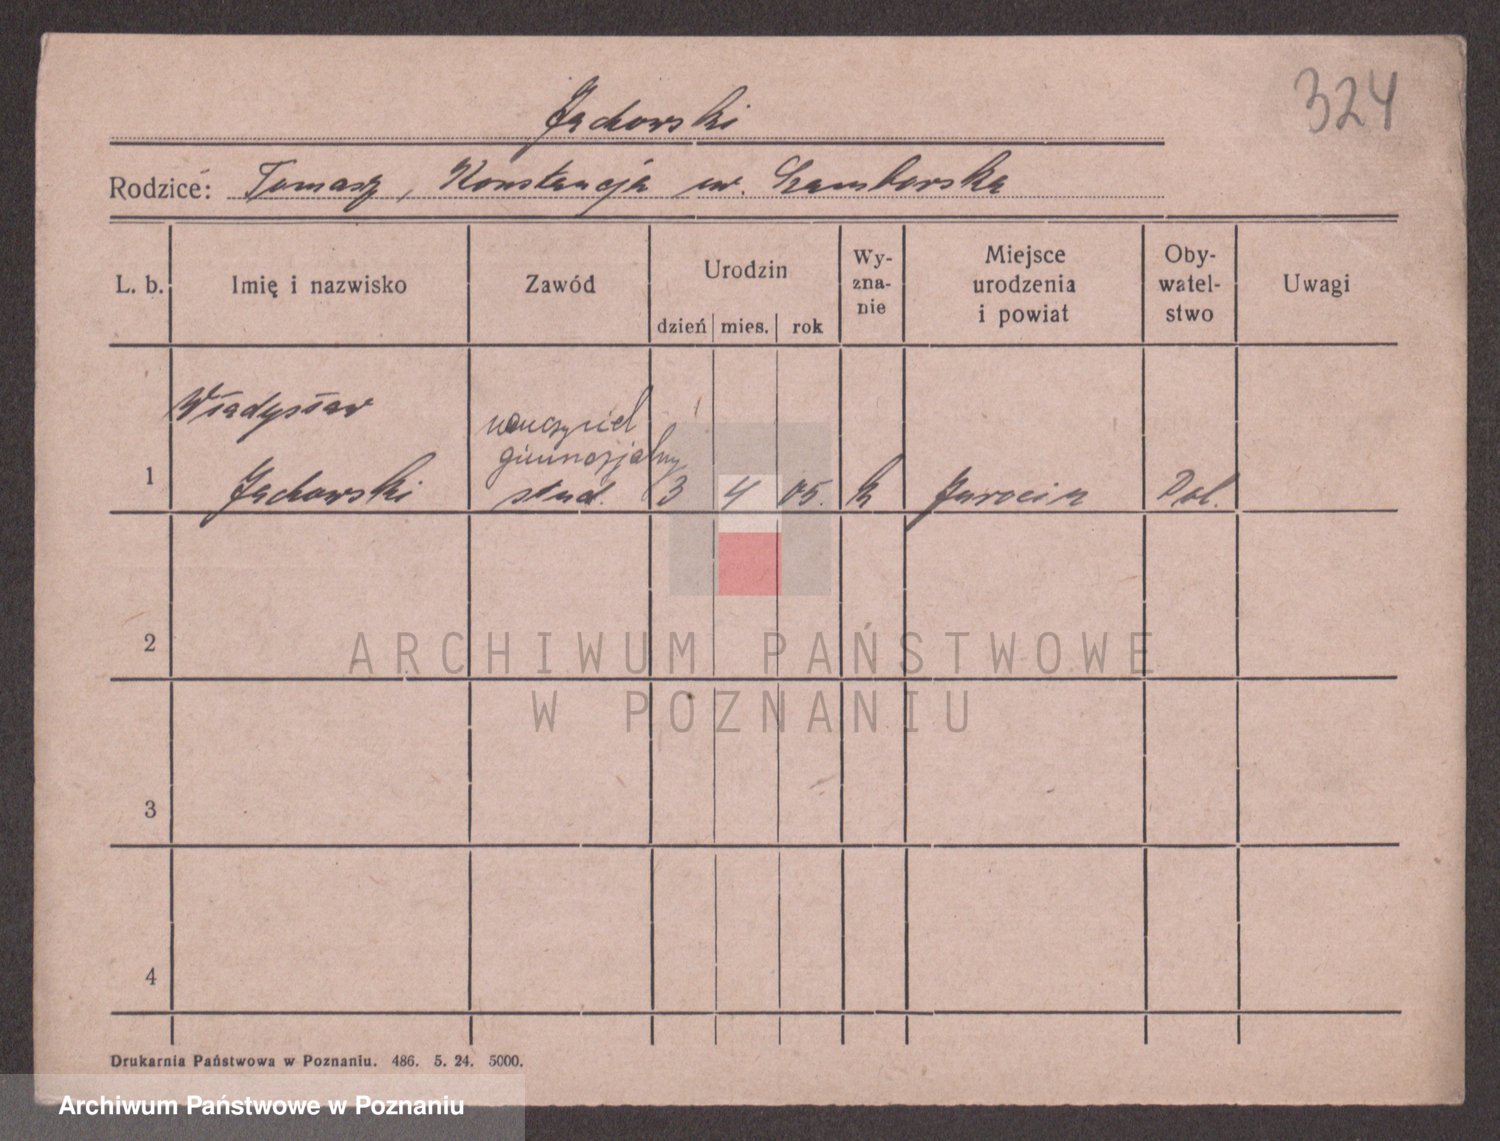 324
Jachowski
Rodzice: Tomasz, Konstancja ur. Szamborska
L. b.
Imię i nazwisko
Zawód
Urodzin
dzień mies. rok
Wy-
zna-
nie
Miejsce
urodzenia
i powiat
Oby-
watel-
stwo
Uwagi
Władysław
nauczyciel
gimnazjalny
1 Jachowski stud. 3 4 05. k Jarocin Pol.
2
3
4
ARCHIWUM PAŃSTWOWE
W POZNANIU
Drukarnia Państwowa w Poznaniu. 486. 5. 24. 5000.
Archiwum Państwowe w Poznaniu